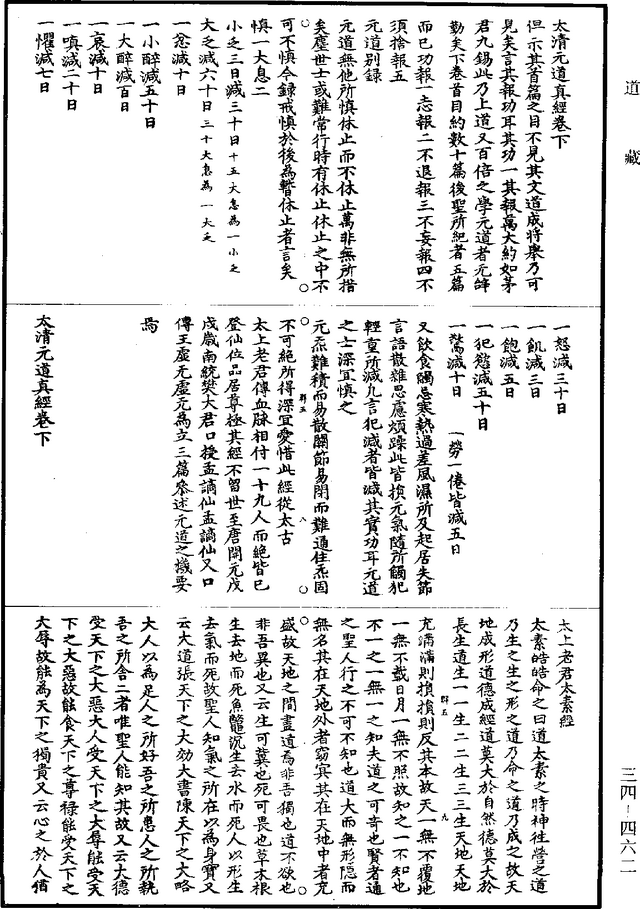 道藏
太清元道真經卷下
但示其首篇之目不見其文道成將舉乃可
見矣言其報功耳其功一其報萬大約如茅
君九錫此乃上道又百倍之學元道者元皞
勤矣下卷首目約數十篇後聖所紀者五篇
而已功報一忘報二不退報三不妄報四不
須捨報五
元道別錄
元道無他所慎休止而不休止萬非無所措
矣塵世士或難常行時有休止休止之中不
可不慎今錄戒慎於後為暫休止者言矣
慎一大息二
小之三日減三十日十五大息為一小之
大之減六十日三十大息為一大之
一忿減十日
一小醉減五十日
一大醉減百日
一哀減十日
一嗔減二十日
一懼減七日
一怒減三十日
一飢減三日
一飽減五日
一犯慾減五十日
一驚減十日 一勞一倦皆減五日
又飲食觸忌寒熱過差風濕所及起居失節
言語散雜思慮煩躁此皆損元氣隨所觸犯
輕重所減凡言犯減者皆減其實功耳元道
之士深宜慎之
元炁難積而易散關節易閉而難通住炁固
不可絕所得深宜愛惜此經從太古
太上老君傳血脉相付一十九人而絕皆已
登仙位品居尊極其經不留世至唐開元戊
戌歲南統樊大君口授孟謫仙孟謫仙又口
傳王虛元虛元為立三篇叅述元道之機要
焉
太清元道真經卷下
太上老君太素經
太素皓皓命之曰道太素之時神往營之道
乃生之生之形之道乃命之道乃成之故天
地成形道德成經道莫大於自然德莫大於
長生道生一一生二二生三三生天地天地
充滿滿則損損則反其本故天一無不覆地
一無不載日月一無不照故知之一不知也
不一之一無一之知夫道之可奇也賢者通
之聖人行之不可不知也道大而無形隱而
無名其在天地外者窈冥其在天地中者充
盛故天地之間盡道為非吾獨也道不欲也
非吾異也又云生可冀也死可畏也草木根
生去地而死魚鼈沉生去水而死人以形生
去氣而死故聖人知氣之所在以為身寶又
云大道張天下之大効大書陳天下之大略
大人以為足人之所好吾之所患人之所執
吾之所舍二者唯聖人能知其故又云大德
受天下之大惡大人受天下之大辱能受天
下之大惡故能食天下之尊祿能受天下之
大辱故能為天下之獨貴又云心之於人猶
三四-四六二